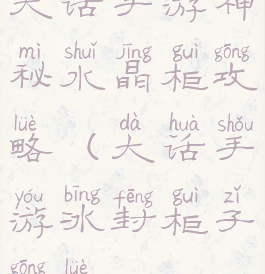 大话手游神
mì shuǐ jīng guì gōng
秘水晶柜攻
lüè dà huà shǒu
略（大话手
yóu bīng fēng guì zǐ
游冰封柜子
gōng lüè